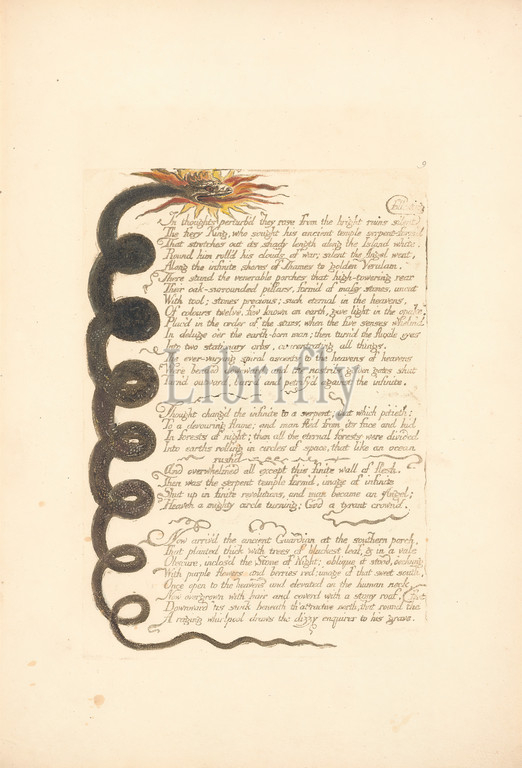 9
In thoughts perturb'd they rose from the bright ruins silent
following
The fiery King, who sought his ancient temple serpent-form'd
That stretches out its shady length along the Island white.
Round him roll'd his clouds of war; silent the Angel went,
Along the infinite shores of Thames to golden Verulam.
There stand the venerable porches that high-towering rear
Their oak-surrounded pillars, form'd of massy stones, uncut
With tool; stones precious; such eternal in the heavens,
Of colours twelve, few known on earth, give light in the opake,
Plac'd in the order of the stars, when the five senses whelm'd
In deluge o'er the earth-born man; then turn'd the fluxile eyes
Into two stationary orbs, concentrating all things.
The ever-varying spiral ascents to the heavens of heavens
Were bended downward; and the nostrils golden gates shut
Turn'd outward, barr'd and petrify'd against the infinite.
Librifly
Thought chang'd the infinite to a serpent; that which pitieth:
To a devouring flame; and man fled from its face and hid
In forests of night; then all the eternal forests were divided
Into earths rolling in circles of space, that like an ocean
rush'd
And overwhelmed all except this finite wall of flesh.
Then was the serpent temple form'd, image of infinite
Shut up in finite revolutions, and man became an Angel;
Heaven a mighty circle turning; God a tyrant crown'd.
Now arriv'd the ancient Guardian at the southern porch,
That planted thick with trees of blackest leaf, & in a vale
Obscure, inclos'd the Stone of Night; oblique it stood, o'erhung
With purple flowers and berries red; image of that sweet south,
Once open to the heavens and elevated on the human neck,
Now overgrown with hair and cover'd with a stony roof,
Downward 'tis sunk beneath th' attractive north, that round the feet
A raging whirlpool draws the dizzy enquirer to his grave.